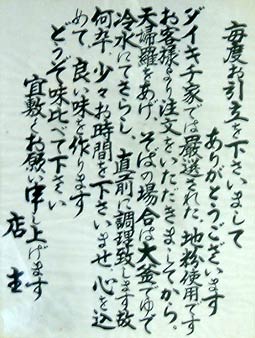 毎度お引立を下さいまして
ありがとうございます
ダイキチ家では厳選された、地粉使用です
お客様より注文をいただきましてから。
天婦羅をあげ、そばの場合は大釜でゆで
冷水にてさらし、直前に調理致します故
何卒、少々お時間を下さいませ、心を込
めて、良い味を作ります
どうぞ味比べて下さい
宜敷くお願い申し上げます
店主